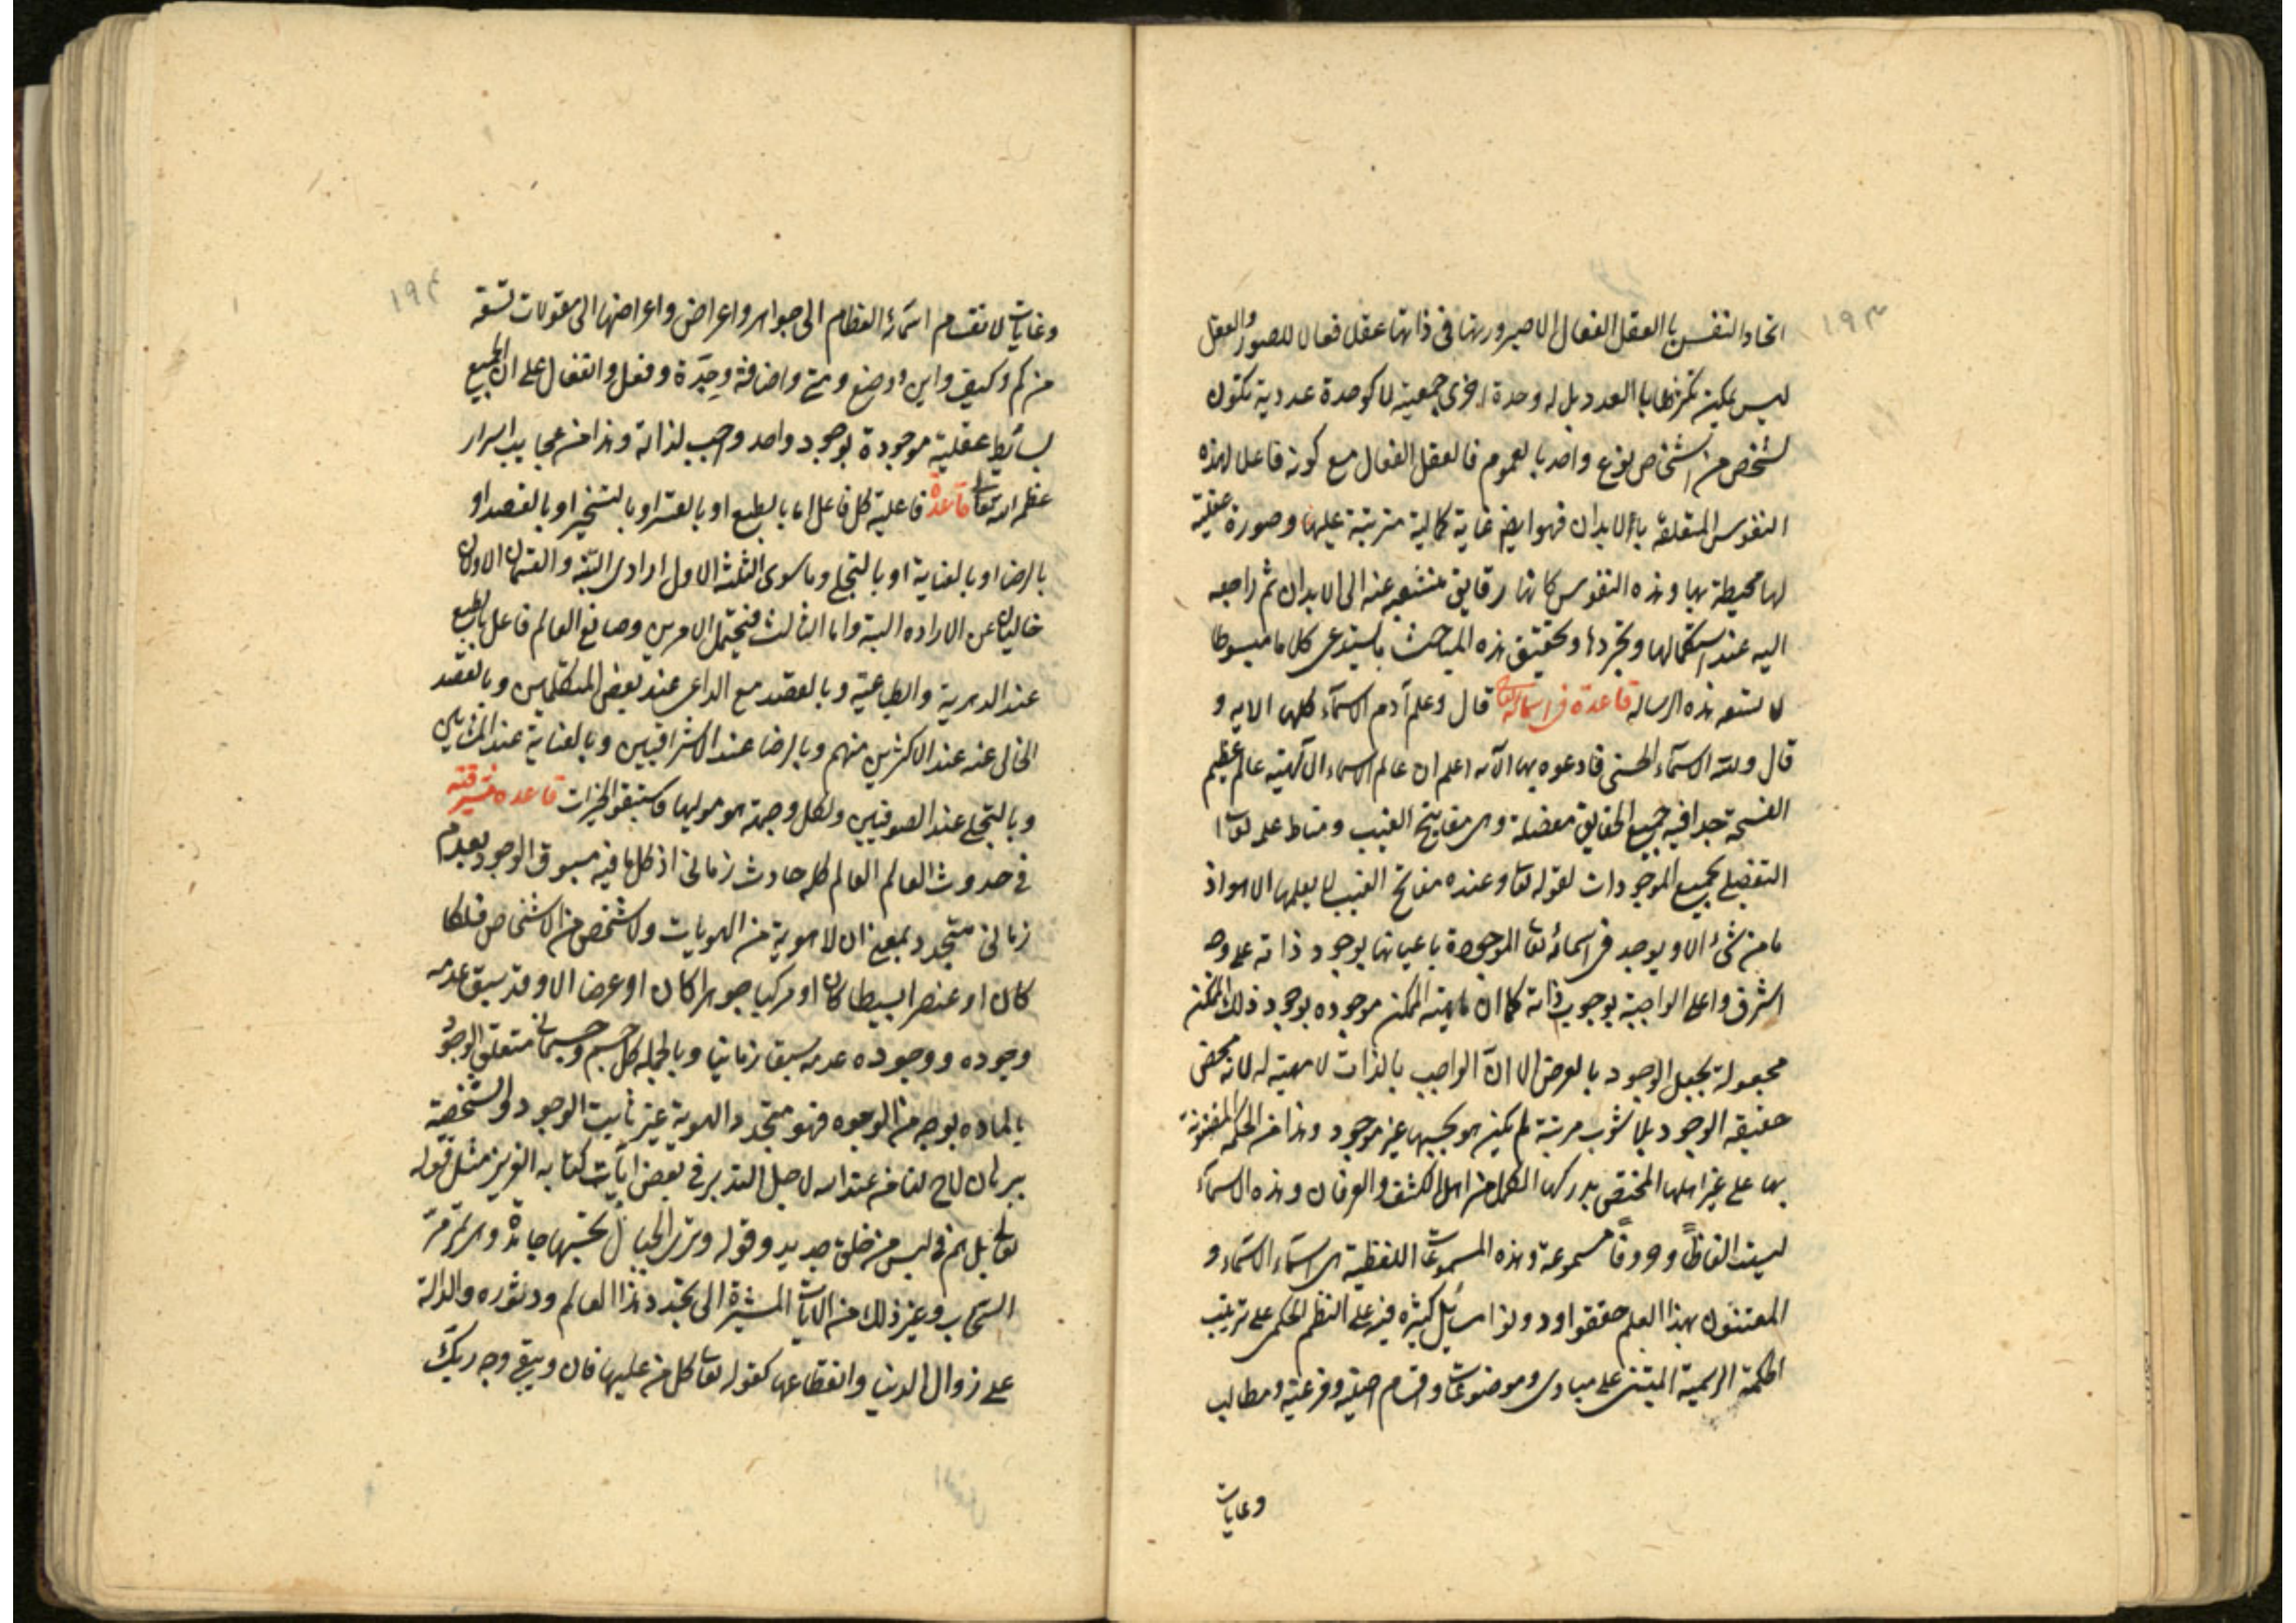 ١٩٣
اتحاد النفس بالعقل الفعال الا صيرورتها فى ذاتها عقلا فعالا للصور والعقل
ليس يمكن تكثرها بالعدد بل له وحدة اخرى جمعية لا كوحدة عددية تكون
لشخص من اشخاص نوع واحد بالعموم فالعقل الفعال مع كونه فاعلا لهذه
النفوس المتعلقة بالابدان فهو ايضا غاية كمالية مترتبة عليها وصورة عقلية
لها محيطة بها وهذه النفوس كانها رقايق منشعبه عنه الى الابدان ثم راجعه
اليه عند استكمالها وتجردها وتحقيق هذه المباحث يستدعى كلاما مبسوطا
لا تسعه هذه الرساله قاعدة فى اسمائه تعا قال وعلم آدم الاسمآء كلها الايه و
قال ولله الاسمآء الحسنى فادعوه بها الآيه اعلم ان عالم الاسماء الآلهية عالم عظيم
الفسحة جدا فيه جميع الحقايق مفصلة وهى مفاتيح الغيب ومناط علمه تعا
التفصيلى بجميع الموجودات لقوله تعا وعنده مفاتح الغيب لا يعلمها الا هو اذ
ما من شئ الا ويوجد فى اسمائه تعا الموجودة باعيانها بوجود ذاته على وجه
اشرف واعلى الواجبة بوجوب ذاته كما ان ماهية الممكن موجوده بوجود ذلك الممكن
مجعولة بجعل الوجود بالعرض الا انّ الواجب بالذات لا مهية له لانه محض
حقيقه الوجود بلا شوب مرتبة لم يكن هو بحسبها غير موجود وهذا من الحكمة المضنونة
بها على غير اهلها المختص بدركها الكمل من اهل الكشف والعرفان وهذه الاسمآء
ليست الفاظاً وحروفاً مسموعة وهذه المسموعات اللفظية هى اسمآء الاسمآء و
المعتنون بهذا العلم حققوا ودونوا مسائل كثيره فيه على النظم الحكمى على ترتيب
الحكمة الرسمية المبتنى على مبادى وموضوعات واقسام اصلية وفرعية ومطالب
وغايات
١٩٤
وغايات لانقسام اسمآئه العظام الى جواهر واعراض واعراضها الى مقولات تسعة
من كم وكيف واين ووضع ومتى واضافة وجِدَة وفعل وانفعال على ان الجميع
بسائط عقلية موجودة بوجود واحد واجب لذاته وهذا من عجايب اسرار
عظمه الله تعا قاعدة فاعلية كل فاعل اما بالطبع او بالقسر او بالتسخير او بالقصد او
بالرضا او بالعناية او بالتجلى وما سوى الثلثة الاول ارادى البتة والقسمان الاولان
خاليان عن الاراده البتة واما الثالث فيحتمل الامرين وصانع العالم فاعل بالطبع
عند الدهرية والطباعية وبالقصد مع الداعى عند بعض المتكلمين وبالقصد
الخالى عنه عند الاكثرين منهم وبالرضا عند الاشراقيين وبالعناية عند المشائين
وبالتجلى عند الصوفيين ولكل وجهة هو موليها فاستبقوا الخيرات قاعده مشرقيه
فى حدوث العالم العالم كله حادث زمانى اذ كل ما فيه مسبوق الوجود بعدم
زمانى متجدد بمعنى ان لا هوية من الهويات ولا شخص من الاشخاص فلكا
كان او عنصرا بسيطا كان او مركبا جوهرا كان او عرضا الا وقد سبق عدمه
وجوده ووجوده عدمه سبقا زمانيا وبالجمله كل جسم وجسمانى متعلق الوجود
بالماده بوجه من الوجوه فهو متجدد الهوية غير ثابت الوجود والشخصية
ببرهان لاح لنا من عند الله لاجل التدبر فى بعض آيات كتابه العزيز مثل قوله
تعالى بل هم فى لبس من خلق جديد وقوله وترى الجبال تحسبها جامدة وهى تمر مرّ
السحاب وغير ذلك من الايات المشيرة الى تجدد هذا العالم ودثوره والدالة
على زوال الدنيا وانقطاعها كقوله تعا كل من عليها فان ويبقى وجه ربك